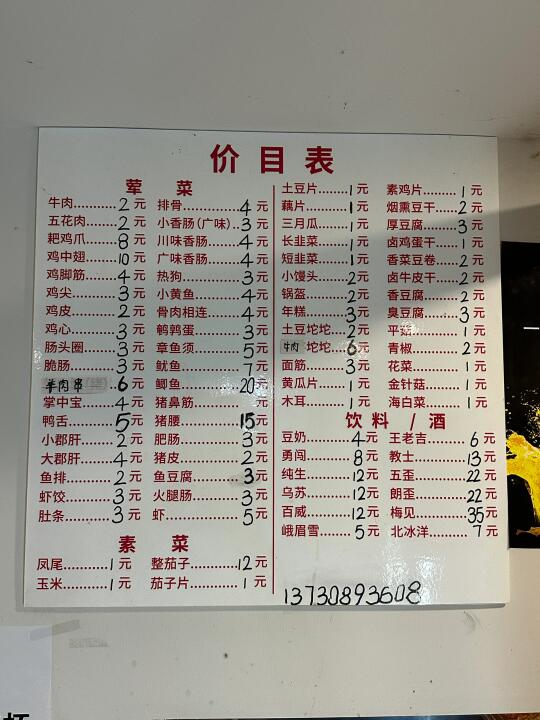 价目表
荤 菜
牛肉............2元
五花肉.........2元
耙鸡爪.........8元
鸡中翅.........10元
鸡脚筋.........4元
鸡尖............3元
鸡皮............2元
鸡心............3元
肠头圈.........3元
脆肠............3元
羊肉串 6元
掌中宝.........4元
鸭舌............5元
小郡肝.........2元
大郡肝.........4元
鱼排............2元
虾饺............3元
肚条............3元
排骨............4元
小香肠(广味)..3元
川味香肠......4元
广味香肠......4元
热狗............3元
小黄鱼.........4元
骨肉相连......4元
鹌鹑蛋.........3元
章鱼须.........5元
鱿鱼............7元
鲫鱼............20元
猪鼻筋.........元
猪腰............15元
肥肠............3元
猪皮............2元
鱼豆腐.........3元
火腿肠.........3元
虾...............5元
素 菜
凤尾............1元
玉米............1元
整茄子.........12元
茄子片.........1元
土豆片.........1元
藕片............1元
三月瓜.........1元
长韭菜.........1元
短韭菜.........1元
小馒头.........2元
锅盔............2元
年糕............3元
土豆坨坨......2元
牛肉坨坨......6元
面筋............3元
黄瓜片.........1元
木耳............1元
素鸡片.........1元
烟熏豆干......2元
厚豆腐.........3元
卤鸡蛋干......1元
香菜豆卷......2元
卤牛皮干......2元
香豆腐.........2元
臭豆腐.........3元
平菇............1元
青椒............2元
花菜............1元
金针菇.........1元
海白菜.........1元
饮料 / 酒
豆奶............4元
勇闯............8元
纯生............12元
乌苏............12元
百威............12元
峨眉雪.........5元
王老吉.........6元
教士............13元
五歪............22元
朗歪............22元
梅见............35元
北冰洋.........7元
13730893608